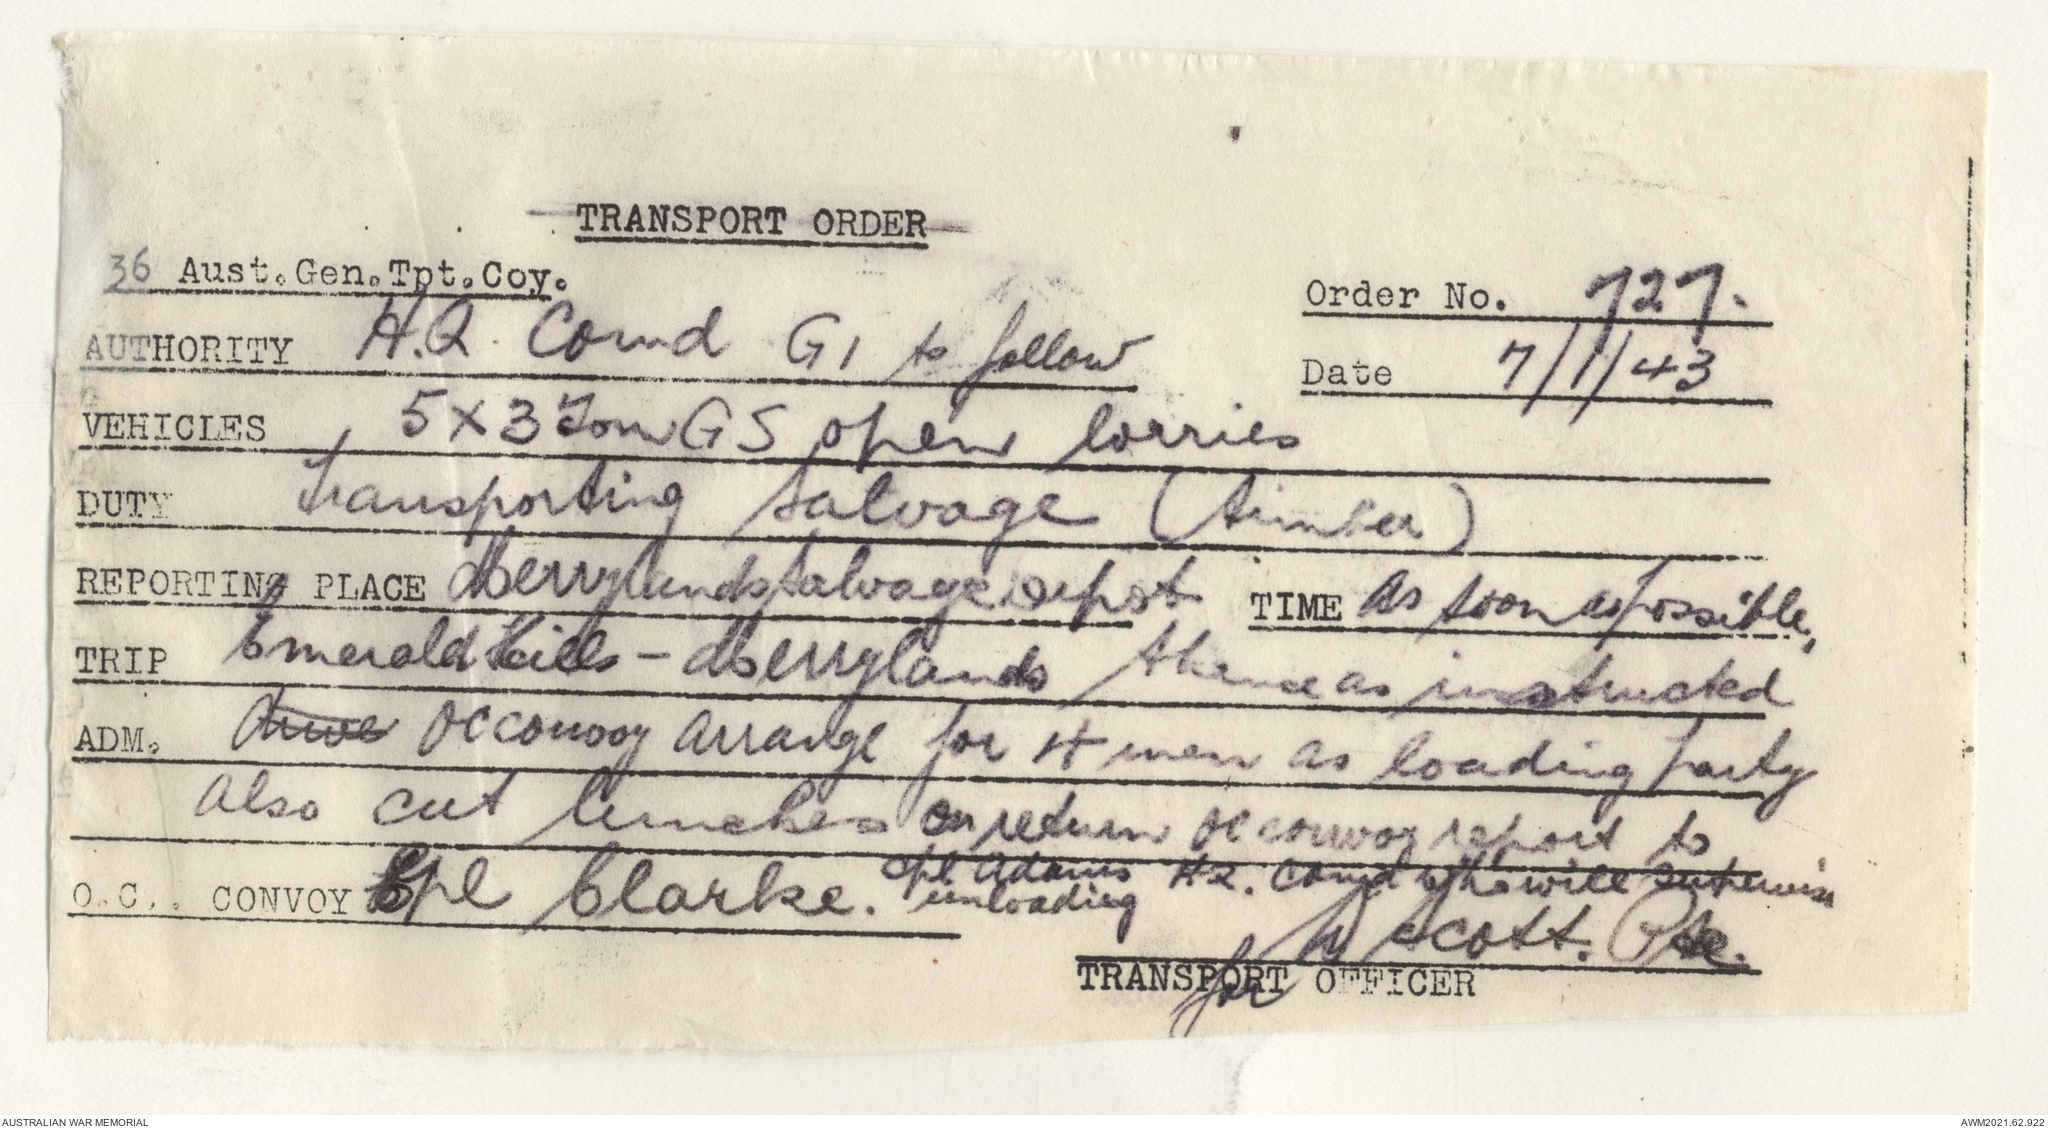 TRANSPORT ORDER
36 Aust.Gen.Tpt.Coy.
Order No. 727.
AUTHORITY H.Q. Comd G1 to follow
Date 7/1/43
VEHICLES 5 X 3 Ton GS open lorries
DUTY Transporting Salvage (timber)
REPORTING PLACE Merrylands Salvage depot TIME As soon as possible,
TRIP Emerald Hills - Merrylands thence as instructed
ADM. OC convoy arrange for 4 men as loading party
also cut lunches on return OC convoy report to
Cpl Adams HQ. Comd who will supervise
unloading
O.C.. CONVOY Cpl Clarke.
for N Scott. Pte.
TRANSPORT OFFICER
AUSTRALIAN WAR MEMORIAL
AWM2021.62.922